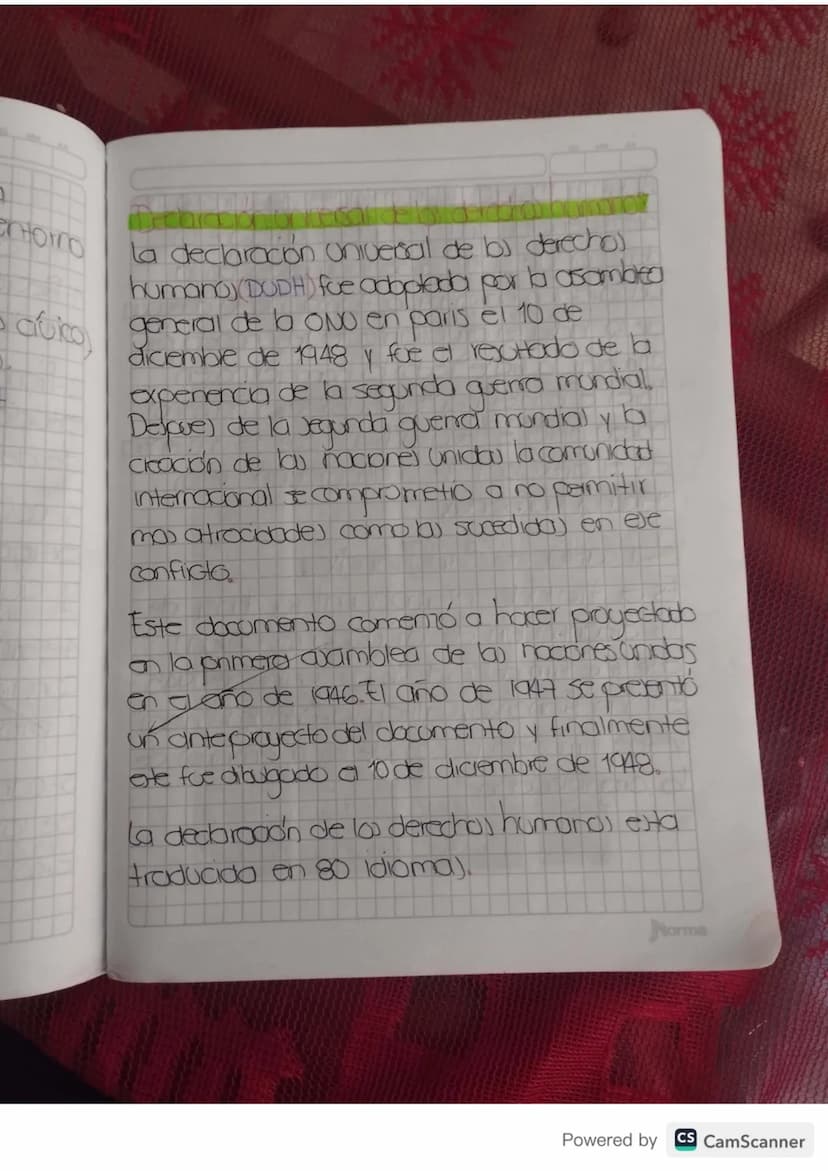 entorno
cívicos
Declaración universal de los derechos humanos
la declaración universal de los derechos
humanos (DUDH) fue adoptada por la asamblea
general de la ONU en paris el 10 de
diciembre de 1948 y fue el resultado de la
experiencia de la segunda guerra mundial.
Despues de la segunda guerra mundial y la
creación de las naciones unidas la comunidad
internacional se comprometio a no permitir
mas atrocidades como las sucedidas en ese
conflicto.
Este documento comenzó a hacer proyectado
en la primera asamblea de las naciones unidas
en el año de 1946. El año de 1947 se presentó
un anteproyecto del documento y finalmente
este fue dibugado el 10 de diciembre de 1948.
La declaración de los derechos humanos esta
traducida en 80 idiomas.
Norma
Powered by CS CamScanner